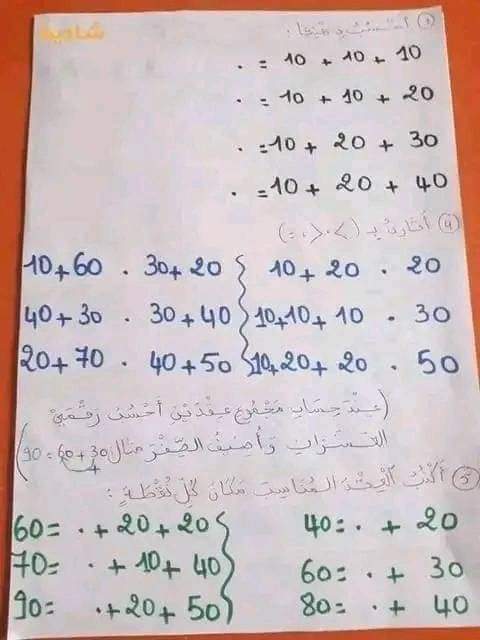 شادية
③ أحسب ذهنيا :
. = 10 + 10 + 10
. = 10 + 10 + 20
. = 10 + 20 + 30
. = 10 + 20 + 40
④ أقارن بـ (> ، < ، =)
10+60 . 30+20 10+20 . 20
40+30 . 30+40 10+10+10 . 30
20+70 . 40+50 10+20+20 . 50
(عند حساب مجموع عقدين أحسب رقمي
العشرات وأضيف الصفر مثال 90 = 60+30)
⑤ أكتب العقد المناسب مكان كل نقطة :
60= . + 20 + 20 40= . + 20
70= . + 10 + 40 60= . + 30
90= . + 20 + 50 80= . + 40